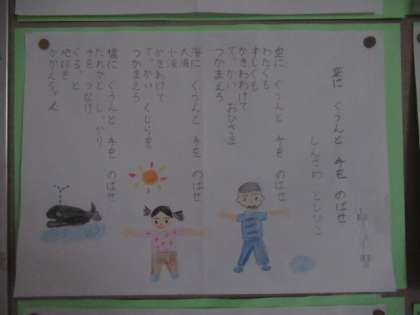 空に ぐうんと 手を のばせ
しんざわ としひこ
空に ぐうんと 手を のばせ
わたぐも
すじぐも
かきわけて
でっかい おひさま
つかまえろ
海に ぐうんと 手を のばせ
大波
小波
かきわけて
でっかい くじらを
つかまえろ
横に ぐうんと 手を のばせ
だれかと しっかり
手を つなげ
ぐるっと
地球を
かかえちゃえ